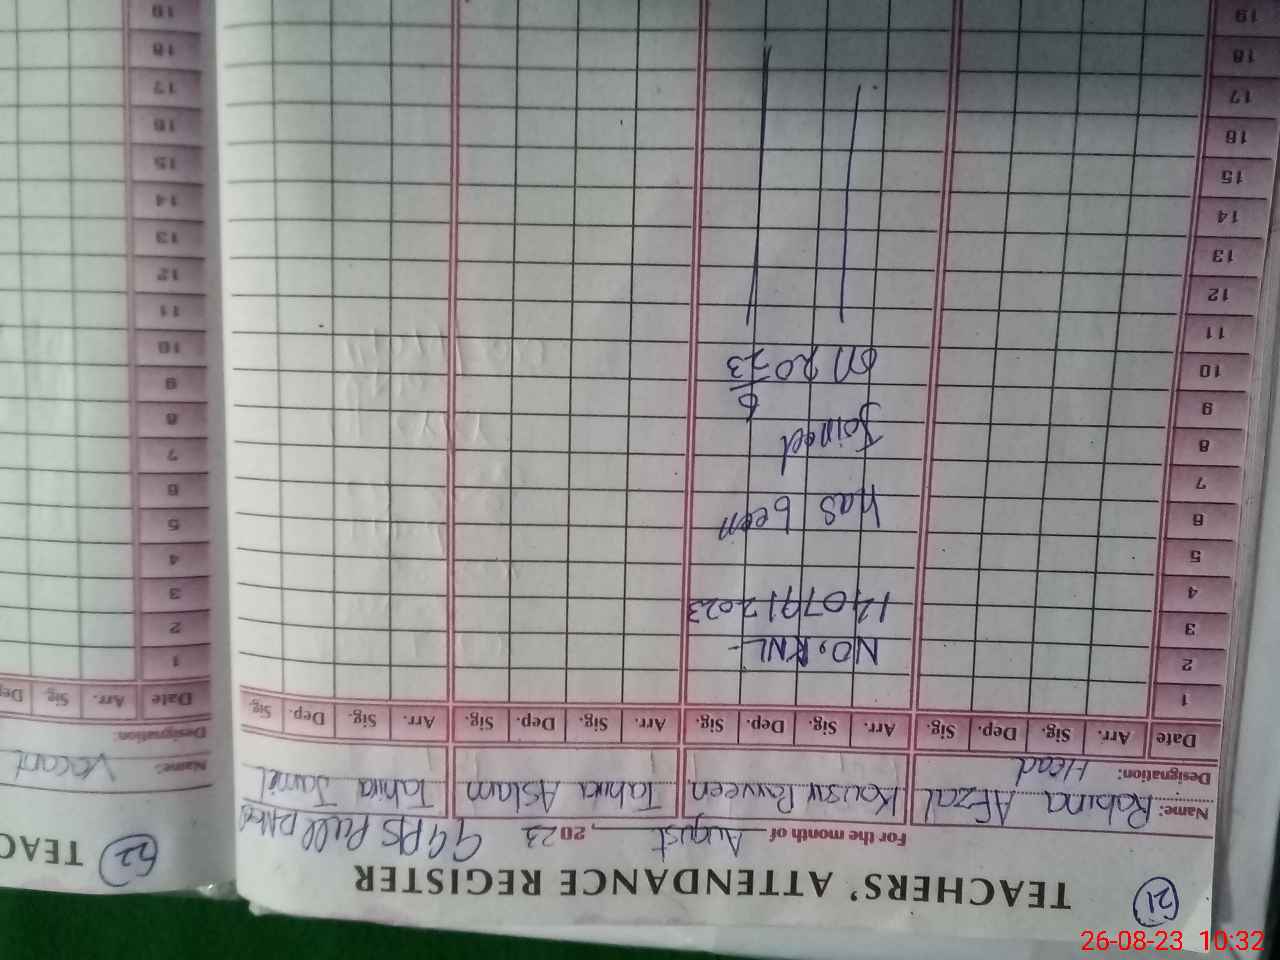 21
TEACHERS' ATTENDANCE REGISTER
For the month of August, 2023 GGPS Pull
Name: Robina Afzal Kousar Parveen Tahira Aslam Tahira Jamil
Designation: Head
Date Arr. Sig. Dep. Sig. Arr. Sig. Dep. Sig. Arr. Sig. Dep. Sig. Arr. Sig. Dep. Sig.
1
2 NO, KNL-
3
4
5
6 has been
7
8 Joined
9 6
10 on 2023
11
12
13
14
15
16
17
18
19
22
TEAC
Name: Vacant
Designation:
Date Arr. Sig. Dep
1
2
3
4
5
6
7
8
9
10
11
12
13
14
15
16
17
18
19
26-08-23 10:32